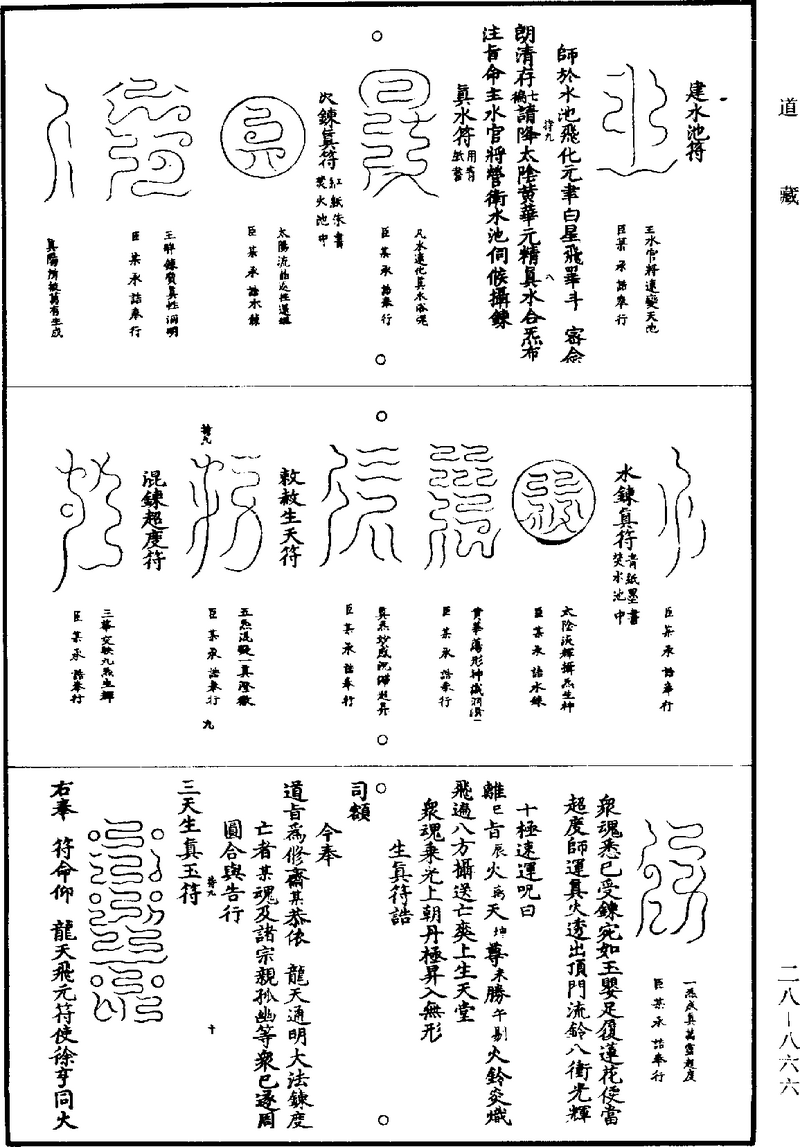 道藏
建水池符
主水官將速變天池
臣某承誥奉行
師於水池飛化元聿白星飛畢斗密念
朗清存禱七請降太陰黄華元精真水合炁布
注旨命主水官將營衛水池伺候攝鍊
符九
八
真水符用青紙書
凡水速化真水浴魂
臣某承誥奉行
火鍊真符紅紙朱書焚火池中
太陽流
臣某承誥水鍊
王醉鍊質真性洞明
臣某承誥奉行
真陽
萬有生成
臣某承誥奉行
水鍊真符青紙墨書焚水池中
太陰
輝攝炁生神
臣某承誥水鍊
黄華蕩形神識洞
臣某承誥奉行
真炁妙成沉滯起昇
臣某承誥奉行
敕赦生天符
符九
五炁混凝一真澄徹
臣某承誥奉行
九
混鍊超度符
三華交映九炁生輝
臣某承誥奉行
一炁成真萬靈超度
臣某承誥奉行
衆魂悉已受鍊宛如玉嬰足履蓮花便當
超度師運真火透出頂門流鈴八衝光輝
十極速運呪曰
離巳旨辰火寅天坤尊未勝午剔火鈴交熾
飛遍八方攝送亡爽上生天堂
衆魂乘光上朝丹極昇入無形
生真符誥
司額
今奉
道旨為修齋某恭依龍天通明大法鍊度
亡者某魂及諸宗親孤幽等衆已逐周
圓合與告行
三天生真玉符
符九
十
右奉符命仰龍天飛元符使徐亨同大
二八—八六六